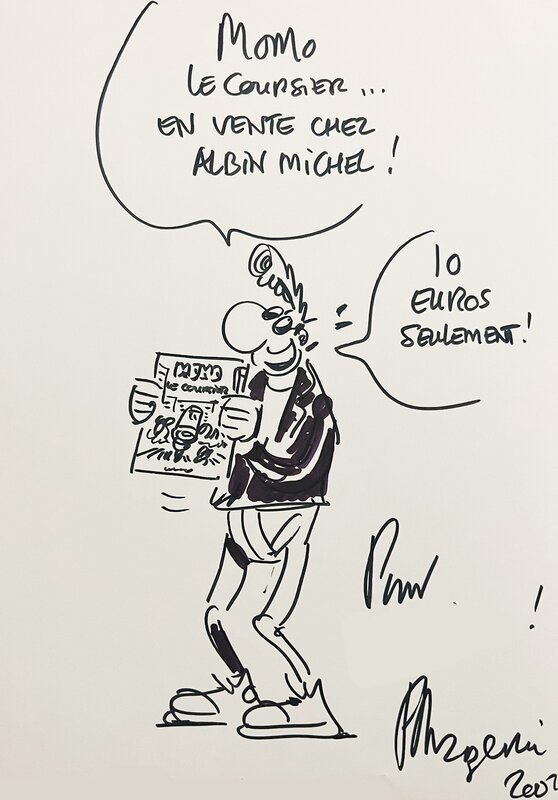 MOMO
LE COURSIER...
EN VENTE CHEZ
ALBIN MICHEL !
10
EUROS
SEULEMENT !
MOMO
LE COURSIER
Pour !
Margerin